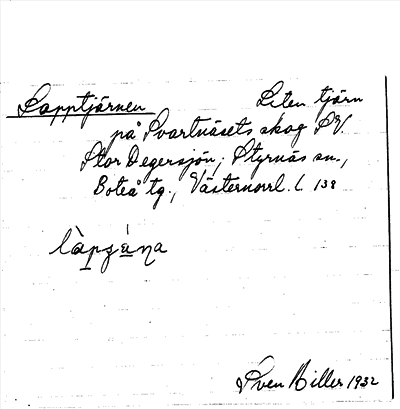 Lapptjärnen Liten tjärn
på Svartnäsets skog S.V.
Stor Degersjön; Styrnäs sn.,
Boteå tg., Västernorrl. l. 138
Sven Hiller 1932